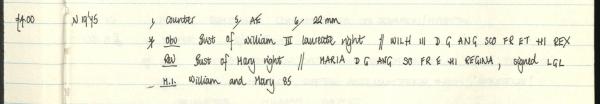 £4.00 N 19/45 , counter 5/ AE 6/ 22mm
Obv Bust of William III laureate right // WILH III D G ANG SCO FR ET HI REX
Rev Bust of Mary right // MARIA D G ANG SO FR E HI REGINA, signed LGL
M.I. William and Mary 85